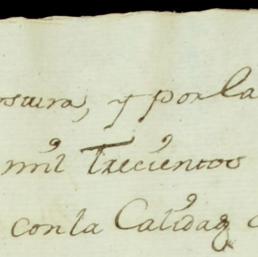 y por la
mil Trecientos
con la Calidad